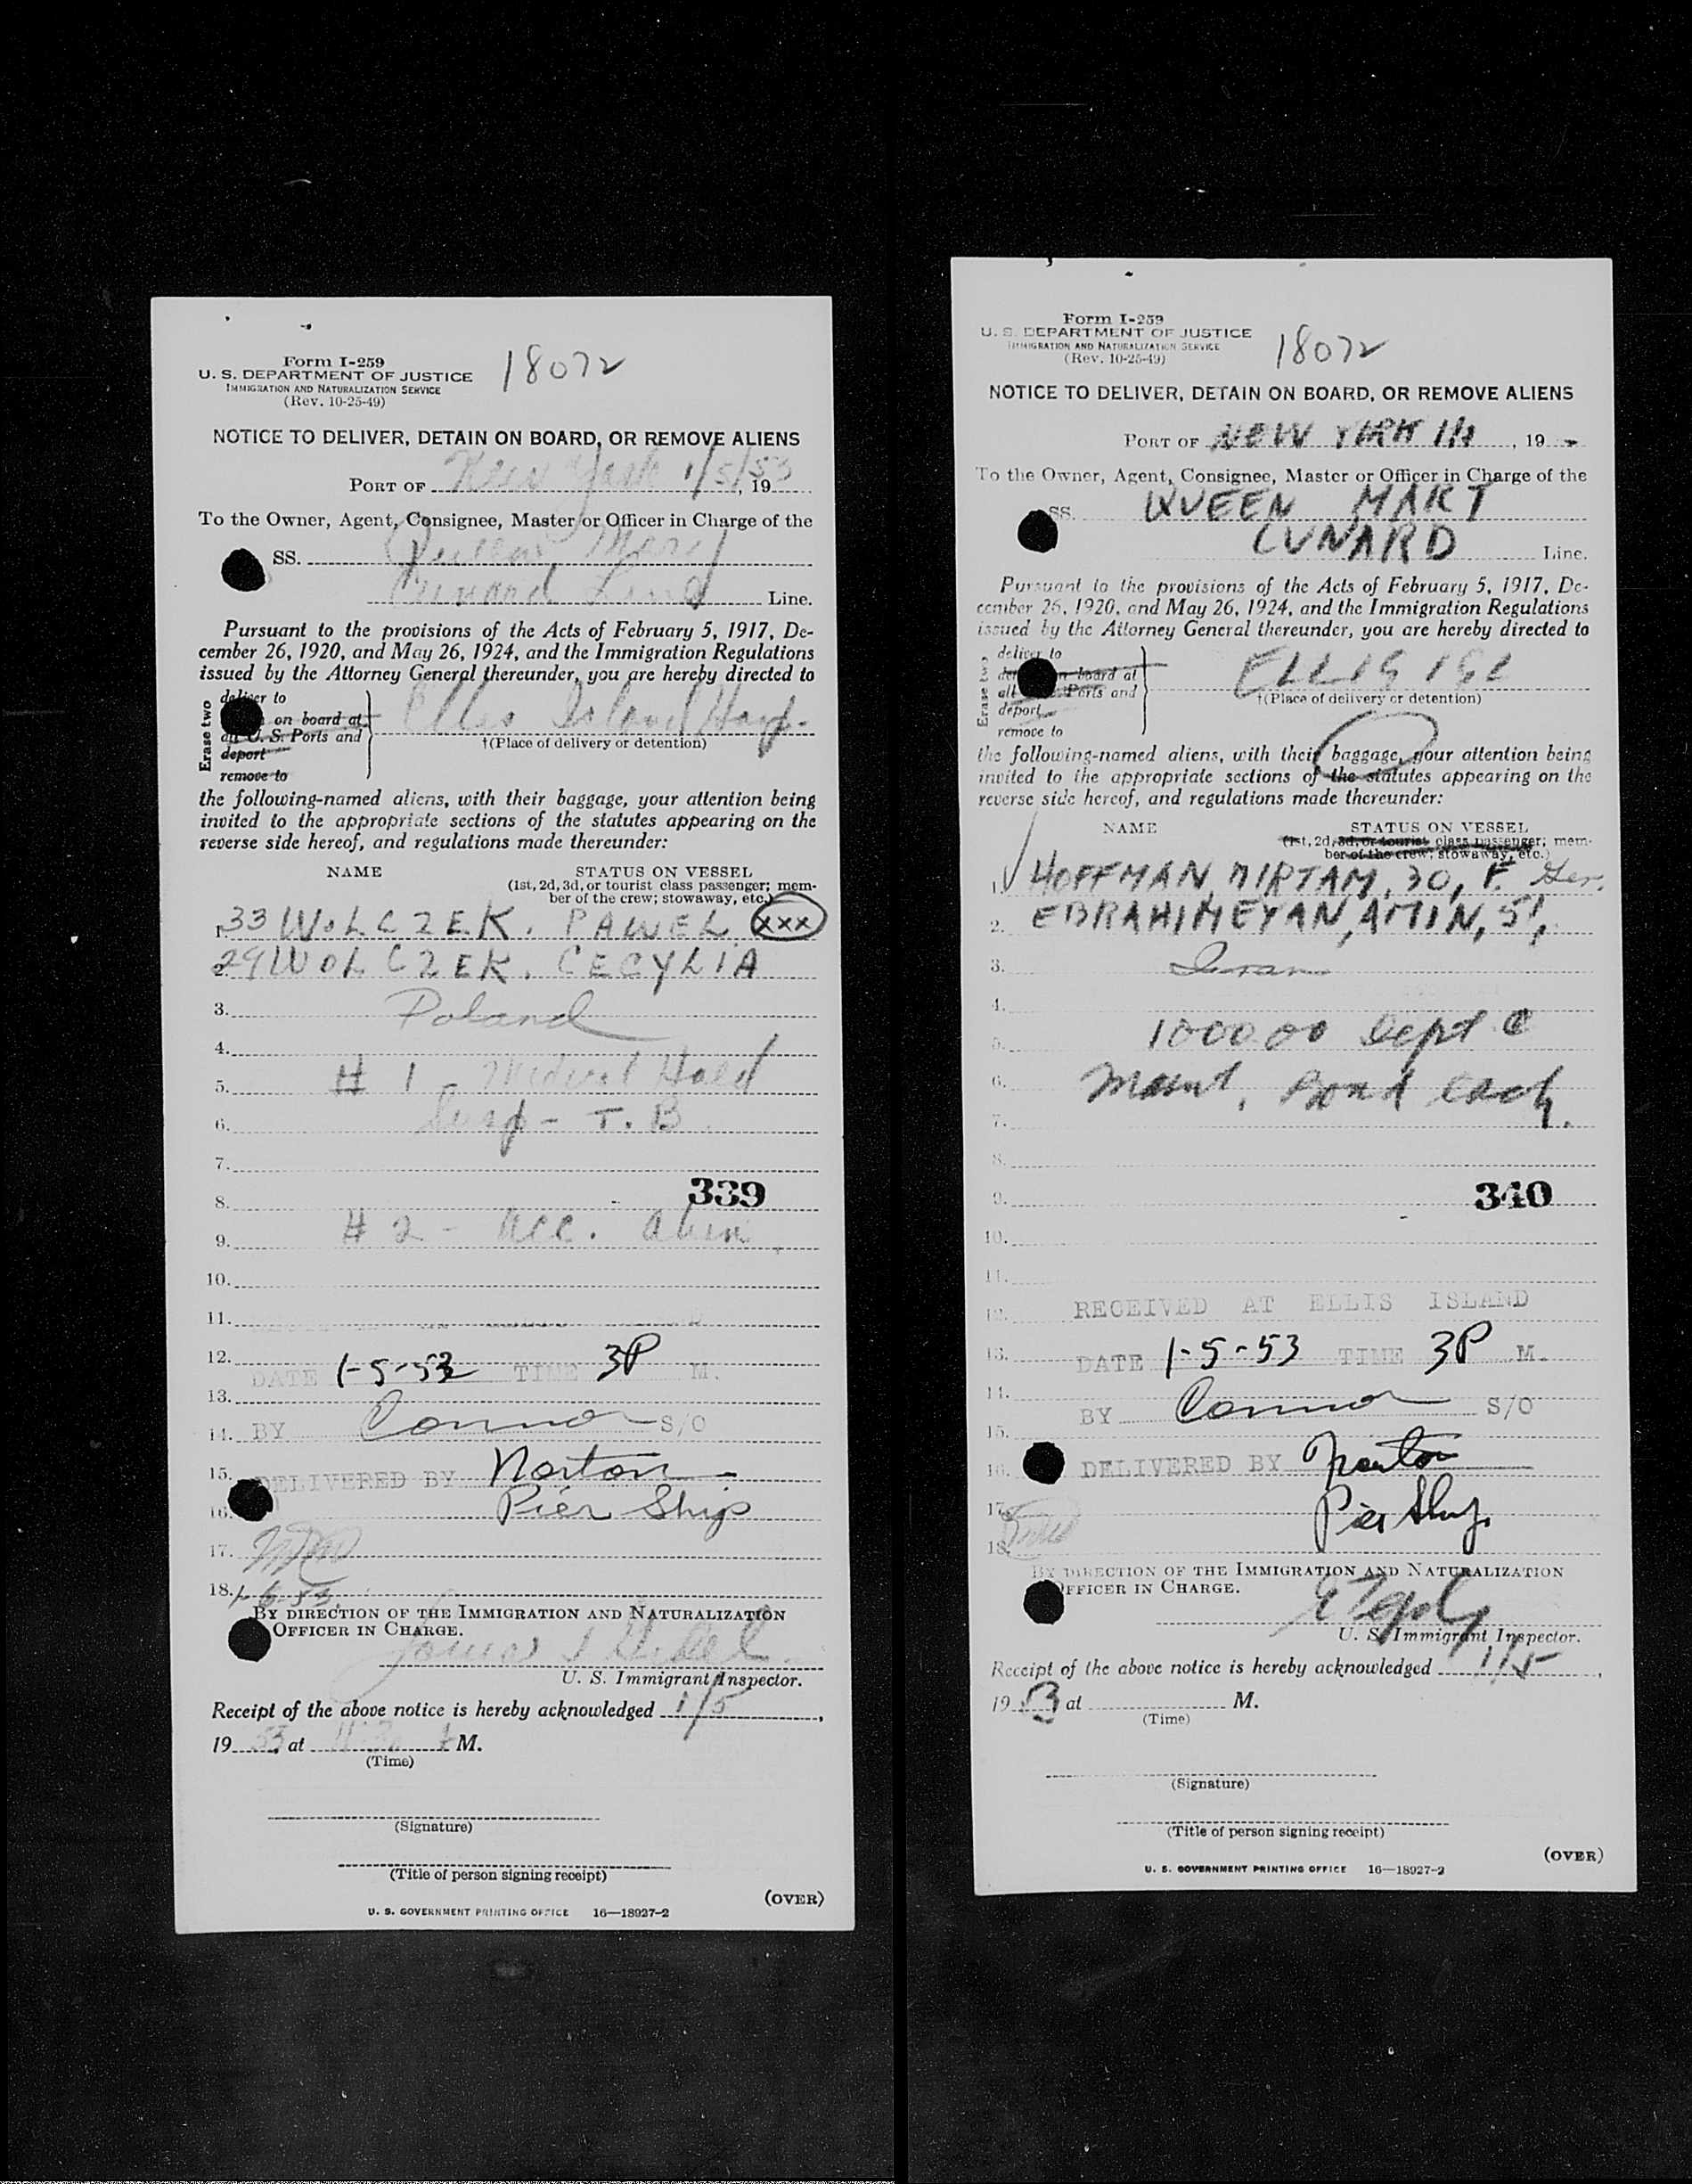 Form I-259
U. S. DEPARTMENT OF JUSTICE
IMMIGRATION AND NATURALIZATION SERVICE
(Rev. 10-25-49)
18072
NOTICE TO DELIVER, DETAIN ON BOARD, OR REMOVE ALIENS
PORT OF New York 1/5/53, 19
To the Owner, Agent, Consignee, Master or Officer in Charge of the
SS. Queen Mary
Cunard Line Line.
Pursuant to the provisions of the Acts of February 5, 1917, De-
cember 26, 1920, and May 26, 1924, and the Immigration Regulations
issued by the Attorney General thereunder, you are hereby directed to
Erase two
deliver to
on board at
all U. S. Ports and
deport
remove to
Ellis Island Hosp.
†(Place of delivery or detention)
the following-named aliens, with their baggage, your attention being
invited to the appropriate sections of the statutes appearing on the
reverse side hereof, and regulations made thereunder:
NAME STATUS ON VESSEL
(1st, 2d, 3d, or tourist class passenger; mem-
ber of the crew; stowaway, etc.)
1. 33 WOLCZEK. PAWEL. XXX
2. 29 WOLCZEK. CECYLIA
3. Poland
4.
5. # 1 - Medical Hold
6. Susp - T. B.
7.
8. 339
9. # 2 - Acc. Alien
10.
11.
12. DATE 1-5-53 TIME 3P M.
13.
14. BY Connor S/O
15. DELIVERED BY Norton
16. Pier Ship
17.
18. 1-6-53
BY DIRECTION OF THE IMMIGRATION AND NATURALIZATION
OFFICER IN CHARGE.
U. S. Immigrant Inspector.
Receipt of the above notice is hereby acknowledged 1/5,
19 53 at M.
(Time)
(Signature)
(Title of person signing receipt)
(OVER)
U. S. GOVERNMENT PRINTING OFFICE 16—18927-2
Form I-259
U. S. DEPARTMENT OF JUSTICE
IMMIGRATION AND NATURALIZATION SERVICE
(Rev. 10-25-49)
18072
NOTICE TO DELIVER, DETAIN ON BOARD, OR REMOVE ALIENS
PORT OF NEW YORK, 19
To the Owner, Agent, Consignee, Master or Officer in Charge of the
SS. QUEEN MARY
CUNARD Line.
Pursuant to the provisions of the Acts of February 5, 1917, De-
cember 26, 1920, and May 26, 1924, and the Immigration Regulations
issued by the Attorney General thereunder, you are hereby directed to
Erase two
deliver to
on board at
all Ports and
deport
remove to
ELLIS ISL
†(Place of delivery or detention)
the following-named aliens, with their baggage, your attention being
invited to the appropriate sections of the statutes appearing on the
reverse side hereof, and regulations made thereunder:
NAME STATUS ON VESSEL
(1st, 2d, 3d, or tourist class passenger; mem-
ber of the crew; stowaway, etc.)
1. HOFFMAN, MIRIAM, 30, F. Ger.
2. EBRAHIMEYAN, AMIN, 51,
3. Iran
4.
5. 1000.00 Dept @
6. Maint. Bond each.
7.
8.
9. 340
10.
11.
12. RECEIVED AT ELLIS ISLAND
13. DATE 1-5-53 TIME 3P M.
14. BY Connor S/O
15.
16. DELIVERED BY Norton
17. Pier Ship
18.
BY DIRECTION OF THE IMMIGRATION AND NATURALIZATION
OFFICER IN CHARGE.
U. S. Immigrant Inspector.
Receipt of the above notice is hereby acknowledged 1/5,
19 53 at M.
(Time)
(Signature)
(Title of person signing receipt)
(OVER)
U. S. GOVERNMENT PRINTING OFFICE 16—18927-2